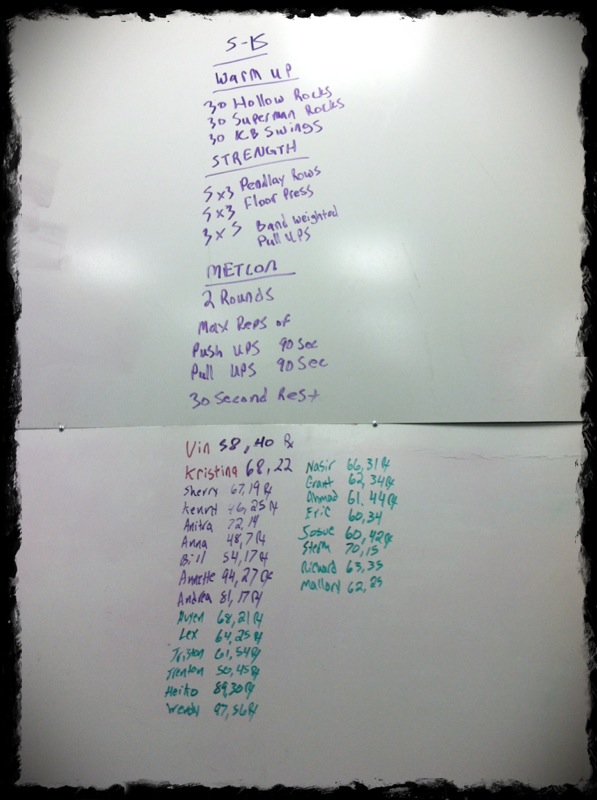 5-15
Warm UP
30 Hollow Rocks
30 Superman Rocks
30 KB Swings
STRENGTH
5x3 Pendlay Rows
5x3 Floor Press
3x5 Band Weighted
Pull UPS
METCON
2 Rounds
Max Reps of
Push UPS 90 Sec
Pull UPS 90 Sec
30 Second Rest
Vin 58, 40 Rx
Kristina 68, 22
Sherry 67, 19 Rx
46, 25 Rx
Anitra 72, 14
Anna 48, 7 Rx
Bill 54, 17 Rx
Annette 94, 27 Rx
Andrea 81, 17 Rx
68, 21 Rx
Lex 64, 25 Rx
Triston 61, 54 Rx
Trenton 50, 45 Rx
Heiko 89, 30 Rx
Wendy 97, 56 Rx
Nasir 66, 31 Rx
Grant 62, 34 Rx
Ahmad 61, 44 Rx
Eric 60, 34
Josue 60, 42 Rx
70, 15
Richard 63, 35
Mallory 62, 25